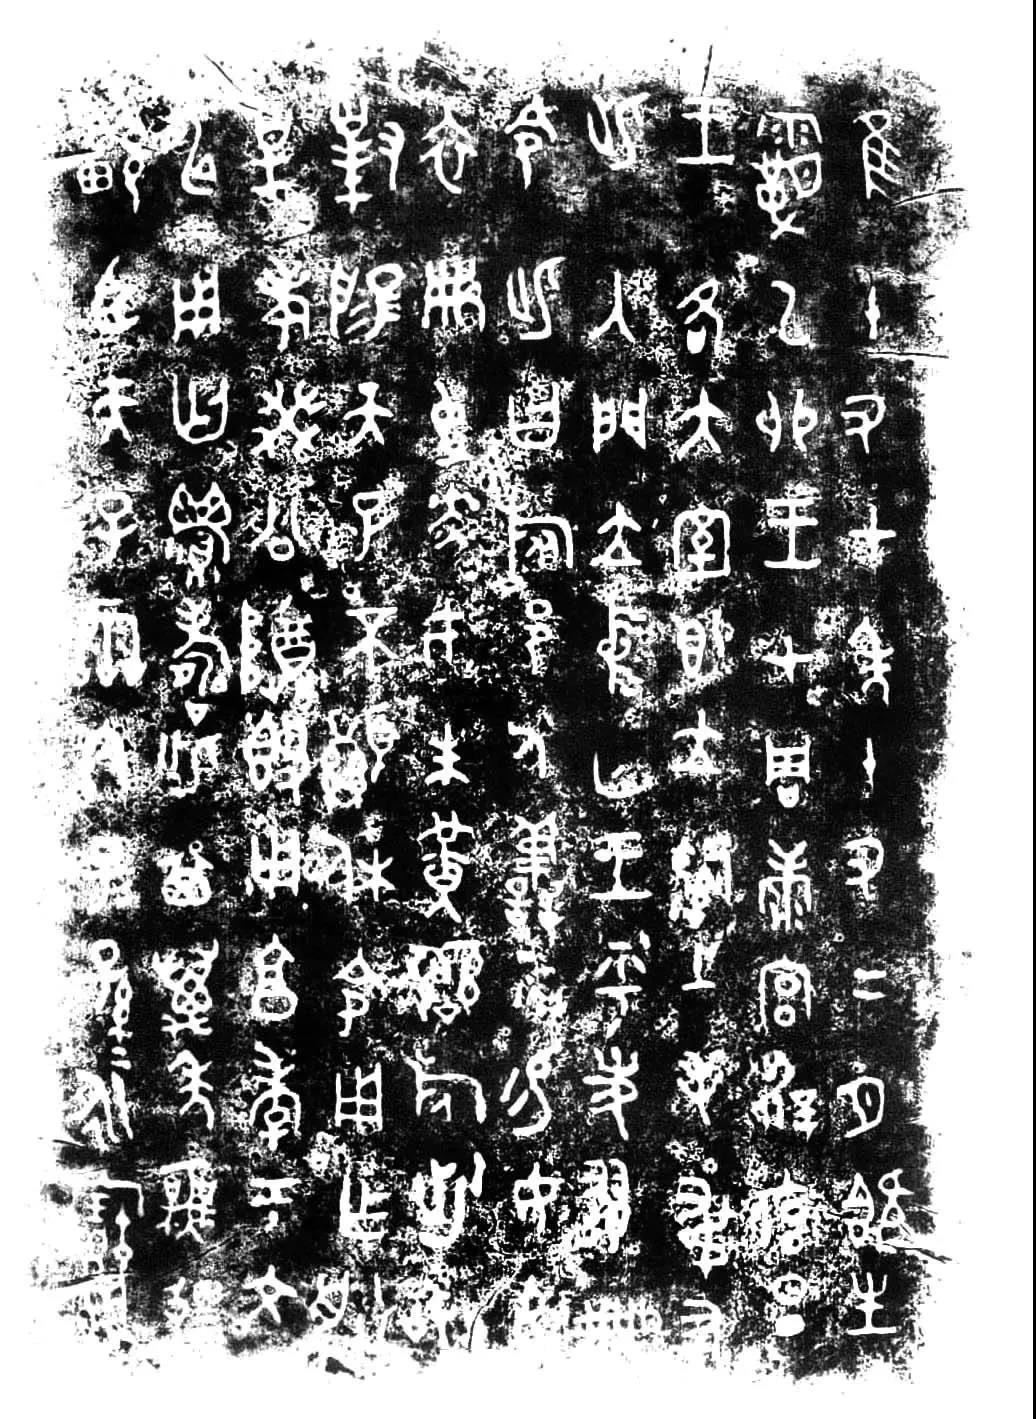 隹十又七年十又二月既生
霸乙卯王才周康宮徲宮旦
王各大室即立司土毛叔右
此入門立中廷王乎史翏冊
令此曰旅邑人善夫易女玄
衣黹屯赤市朱黃䜌旅此敢
對揚天子不顯休令用乍朕
皇考癸公尊鼎用享孝于文
申用匄眉壽此其萬年無疆
畯臣天子霝冬子子孫孫永寶用